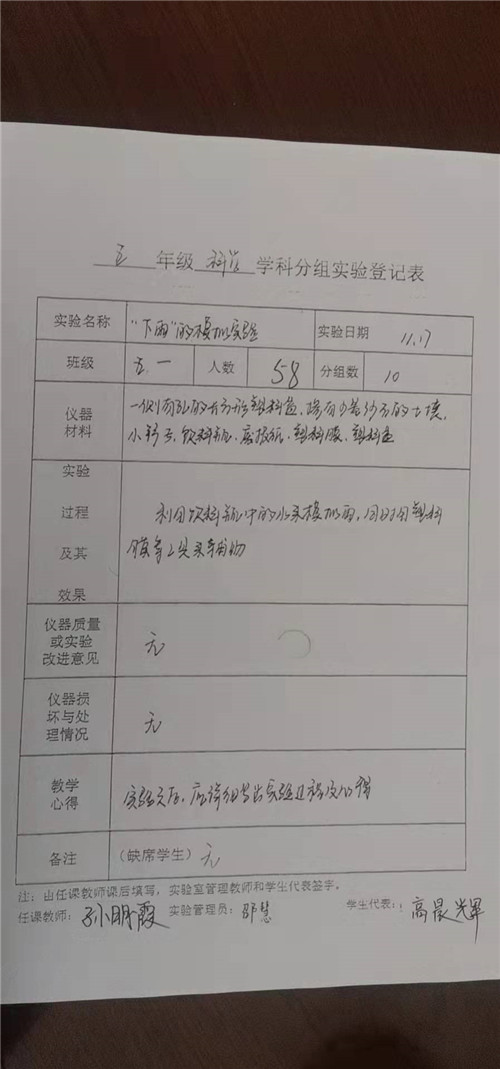 五 年级 科学 学科分组实验登记表
实验名称 "下雨"的模拟实验 实验日期 11.17
班级 五一 人数 58 分组数 10
仪器材料 一侧有孔的长方形塑料盒、掺有少量沙石的土壤、
小铲子、饮料瓶、废报纸、塑料膜、塑料盒
实验
过程 利用饮料瓶中的水来模拟雨,同时用塑料
及其 膜等工具来辅助
效果
仪器质量
或实验 无
改进意见
仪器损
坏与处 无
理情况
教学
心得 实验之后,应详细写出实验过程及心得
备注 (缺席学生) 无
注:由任课教师课后填写,实验室管理教师和学生代表签字。
任课教师: 孙明霞 实验管理员: 邵慧 学生代表: 高晨光